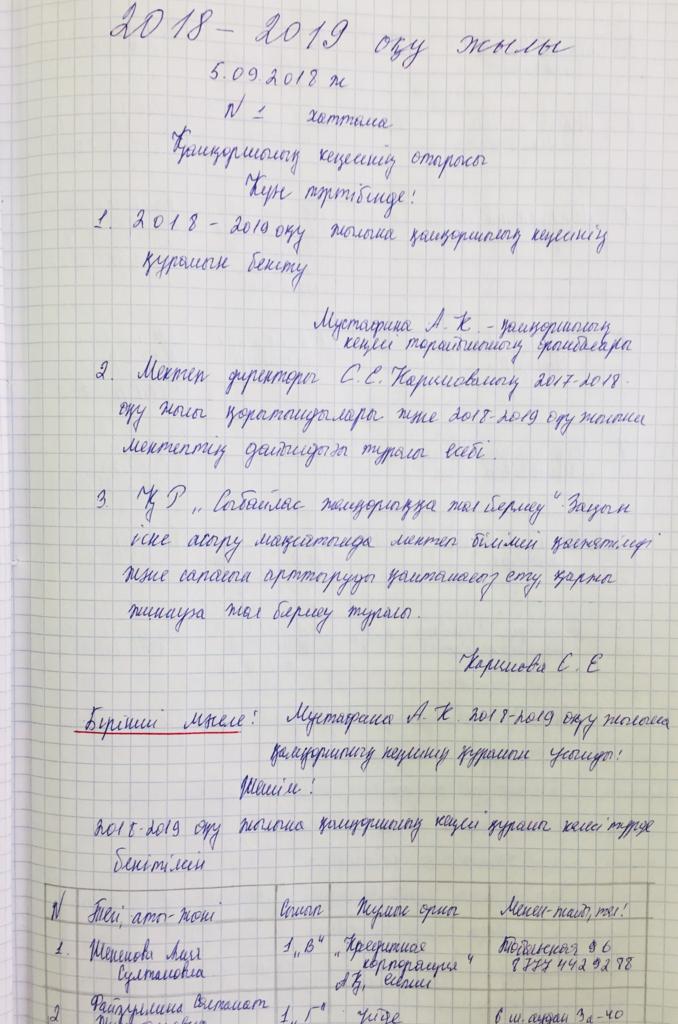 2018 – 2019 оқу жылы
5.09.2018 ж
N 1 хаттама
Қамқоршылық кеңесінің отырысы
Күн тәртібінде!
1. 2018 – 2019 оқу жылына қамқоршылық кеңесінің
құрамын бекіту
Мустафина А. К. – қамқоршылық
кеңесі төрайымының орынбасары
2. Мектеп директоры С.Е. Каримованың 2017-2018-
оқу жылы қорытындылары және 2018-2019 оқу жылына
мектептің дайындығы туралы есебі.
3. ҚР „Сыбайлас жемқорлыққа жол бермеу" Заңын
іске асыру мақсатында мектеп білімін қолжетімді
және сапасын арттыруды қамтамасыз ету, қаржы
жинауға жол бермеу туралы.
Каримова С. Е
Бірінші мәселе! Мустафина А. К. 2018-2019 оқу жылына
қамқоршылық кеңесінің құрамын ұсынды!
Шешім!
2018-2019 оқу жылына қамқоршылық кеңесі құрамы келесі түрде
бекітілсін
N Тегі, аты-жөні Сынып Жұмыс орны Мекен-жайы, тел!
1. Лиза 1 „В" „Кредитная 96
Султановна корпорация" 8777 4429278
АҚ,
2 Файзуллина Салтанат 1 „Г" Үйде 6 ш.аудан 3а-40